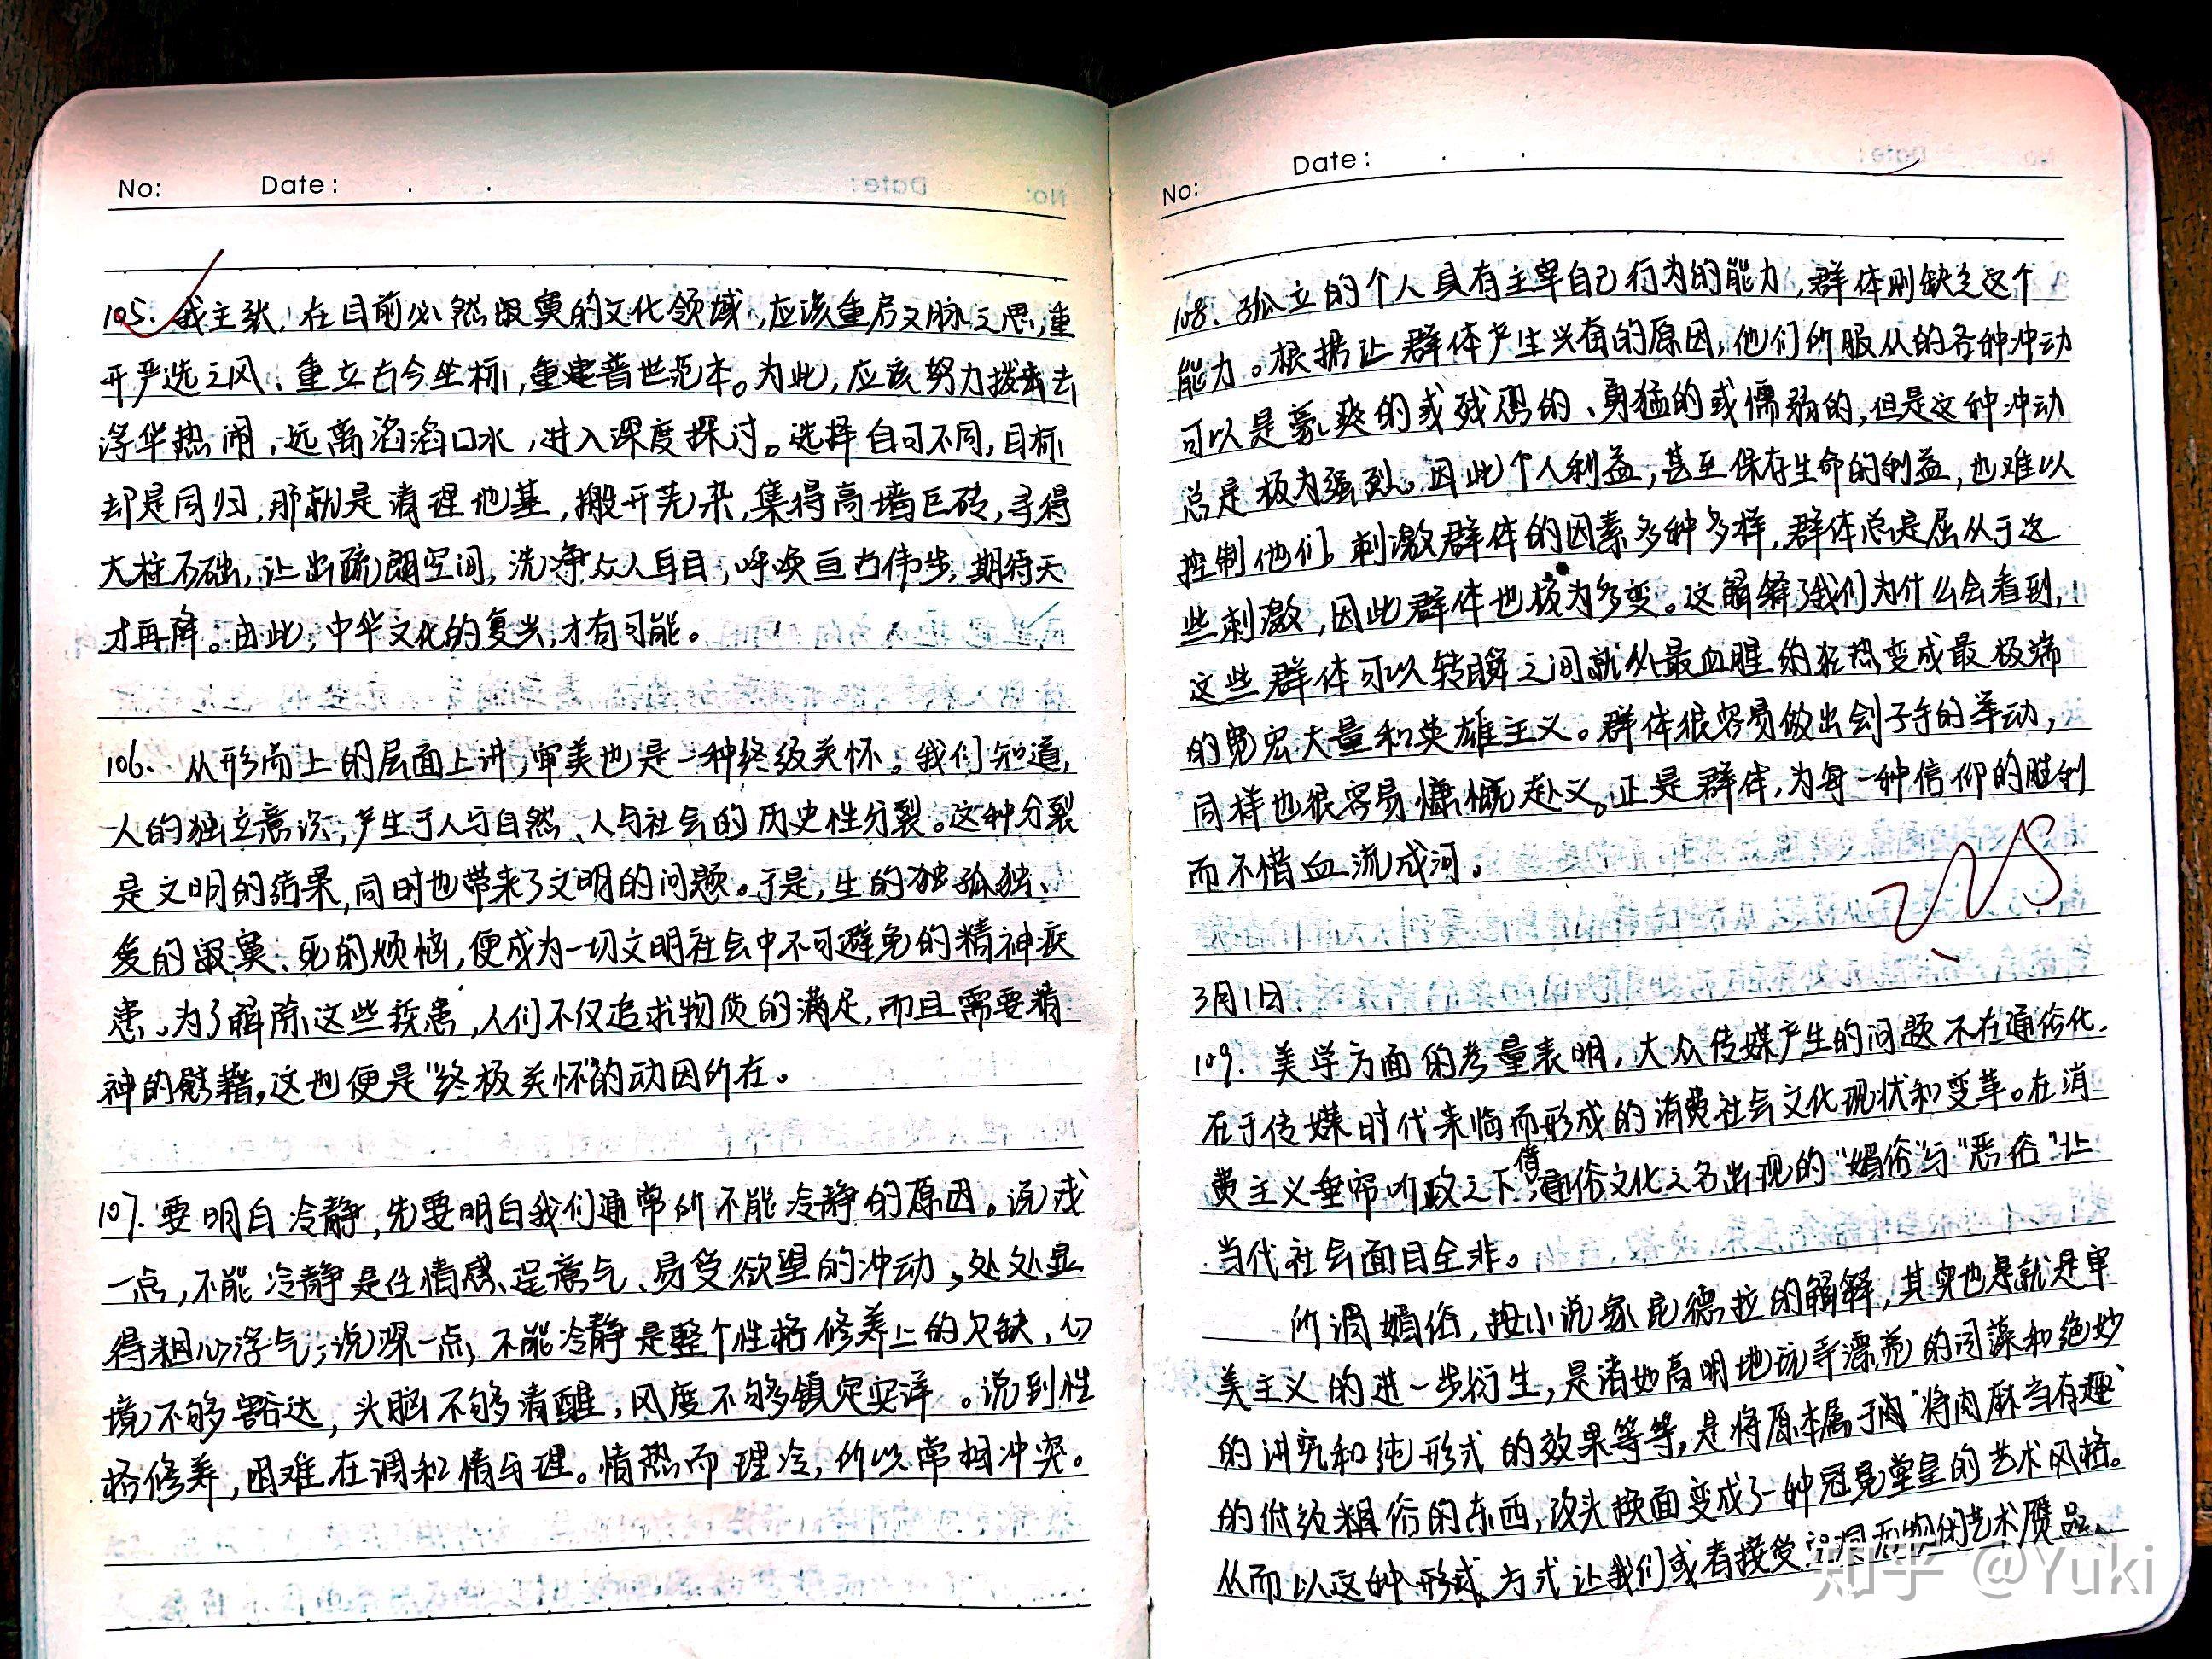 No: Date: . .
105. 我主张,在目前必然寂寞的文化领域,应该重启文脉之思,重
开严选之风、重立古今坐标,重建普世范本。为此,应该努力拨去
浮华热闹,远离滔滔口水,进入深度探讨。选择自可不同,目标
却是同归,那就是清理地基,搬开芜杂,集得高墙巨砖,寻得
大柱石础,让出疏朗空间,洗净众人耳目,呼唤亘古伟步,期待天
才再降。由此,中华文化的复兴,才有可能。
106、从形而上的层面上讲,审美也是一种终级关怀。我们知道,
人的独立意识,产生于人与自然、人与社会的历史性分裂。这种分裂
是文明的结果,同时也带来了文明的问题。于是,生的独孤独、
爱的寂寞、死的烦恼,便成为一切文明社会中不可避免的精神疾
患。为了解除这些疾患,人们不仅追求物质的满足,而且需要精
神的慰藉。这也便是“终极关怀”的动因所在。
107. 要明白冷静,先要明白我们通常所不能冷静的原因。说浅
一点,不能冷静是任情感、逞意气、易受欲望的冲动,处处显
得粗心浮气;说深一点,不能冷静是整个性格修养上的欠缺,心
境不够豁达,头脑不够清醒,风度不够镇定安详。说到性
格修养,困难在调和情与理。情热而理冷,所以常相冲突。
No: Date: . .
108、孤立的个人具有主宰自己行为的能力,群体则缺乏这个
能力。根据让群体产生兴奋的原因,他们所服从的各种冲动
可以是豪爽的或残忍的、勇猛的或懦弱的,但是这种冲动
总是极为强烈。因此个人利益,甚至保存生命的利益,也难以
控制他们。刺激群体的因素多种多样,群体总是屈从于这
些刺激,因此群体也极为多变。这解释了我们为什么会看到,
这些群体可以转瞬之间就从最血腥的狂热变成最极端
的宽宏大量和英雄主义。群体很容易做出刽子手的举动,
同样也很容易慷慨赴义。正是群体,为每一种信仰的胜利
而不惜血流成河。
3月1日.
109. 美学方面的考量表明,大众传媒产生的问题不在通俗化,
在于传媒时代来临而形成的消费社会文化现状和变革。在消
费主义垂帘听政之下,借通俗文化之名出现的“媚俗”与“恶俗”让
当代社会面目全非。
所谓媚俗,按小说家昆德拉的解释,其实也是就是审
美主义的进一步衍生,是诸如高明地玩弄漂亮的词藻和绝妙
的讲究和纯形式的效果等等,是将原本属于肉“将肉麻当有趣”
的低级粗俗的东西,改头换面变成了一种冠冕堂皇的艺术风格。
从而以这种形式、方式让我们或者接受空洞无物的艺术赝品、
知乎 @Yuki